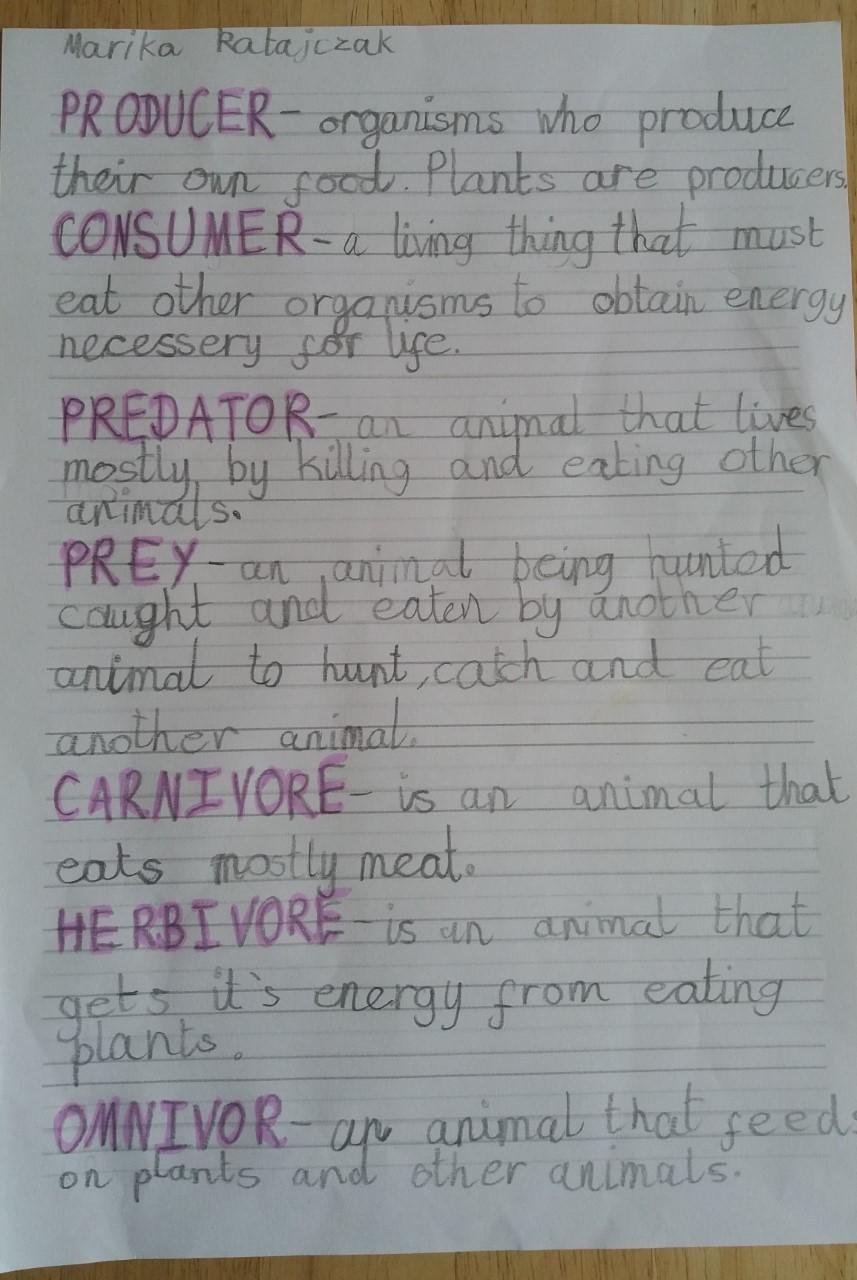 Marika Ratajczak
PRODUCER- organisms who produce
their own food. Plants are producers.
CONSUMER- a living thing that must
eat other organisms to obtain energy
necessery for life.
PREDATOR- an animal that lives
mostly by killing and eating other
animals.
PREY- an animal being hunted
caught and eaten by another
animal to hunt, catch and eat
another animal.
CARNIVORE- is an animal that
eats mostly meat.
HERBIVORE- is an animal that
gets it's energy from eating
plants.
OMNIVOR- an animal that feeds
on plants and other animals.